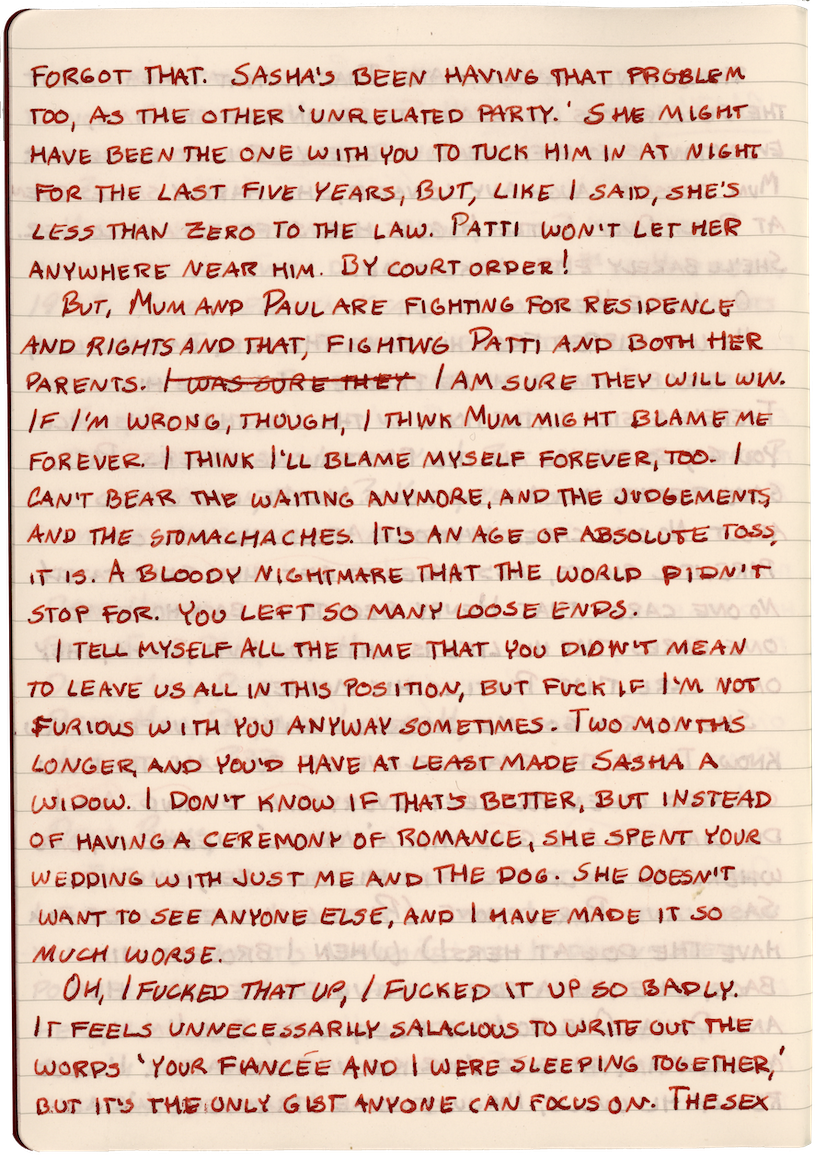 FORGOT THAT. SASHA'S BEEN HAVING THAT PROBLEM
TOO, AS THE OTHER 'UNRELATED PARTY.' SHE MIGHT
HAVE BEEN THE ONE WITH YOU TO TUCK HIM IN AT NIGHT
FOR THE LAST FIVE YEARS, BUT, LIKE I SAID, SHE'S
LESS THAN ZERO TO THE LAW. PATTI WON'T LET HER
ANYWHERE NEAR HIM. BY COURT ORDER!
BUT, MUM AND PAUL ARE FIGHTING FOR RESIDENCE
AND RIGHTS AND THAT, FIGHTING PATTI AND BOTH HER
PARENTS. I WAS SURE THEY I AM SURE THEY WILL WIN.
IF I'M WRONG, THOUGH, I THINK MUM MIGHT BLAME ME
FOREVER. I THINK I'LL BLAME MYSELF FOREVER, TOO. I
CAN'T BEAR THE WAITING ANYMORE, AND THE JUDGEMENTS,
AND THE STOMACHACHES. IT'S AN AGE OF ABSOLUTE TOSS,
IT IS. A BLOODY NIGHTMARE THAT THE WORLD DIDN'T
STOP FOR. YOU LEFT SO MANY LOOSE ENDS.
I TELL MYSELF ALL THE TIME THAT YOU DIDN'T MEAN
TO LEAVE US ALL IN THIS POSITION, BUT FUCK IF I'M NOT
FURIOUS WITH YOU ANYWAY SOMETIMES. TWO MONTHS
LONGER, AND YOU'D HAVE AT LEAST MADE SASHA A
WIDOW. I DON'T KNOW IF THAT'S BETTER, BUT INSTEAD
OF HAVING A CEREMONY OF ROMANCE, SHE SPENT YOUR
WEDDING WITH JUST ME AND THE DOG. SHE DOESN'T
WANT TO SEE ANYONE ELSE, AND I HAVE MADE IT SO
MUCH WORSE.
OH, I FUCKED THAT UP, I FUCKED IT UP SO BADLY.
IT FEELS UNNECESSARILY SALACIOUS TO WRITE OUT THE
WORDS 'YOUR FIANCÉE AND I WERE SLEEPING TOGETHER,'
BUT IT'S THE ONLY GIST ANYONE CAN FOCUS ON. THE SEX